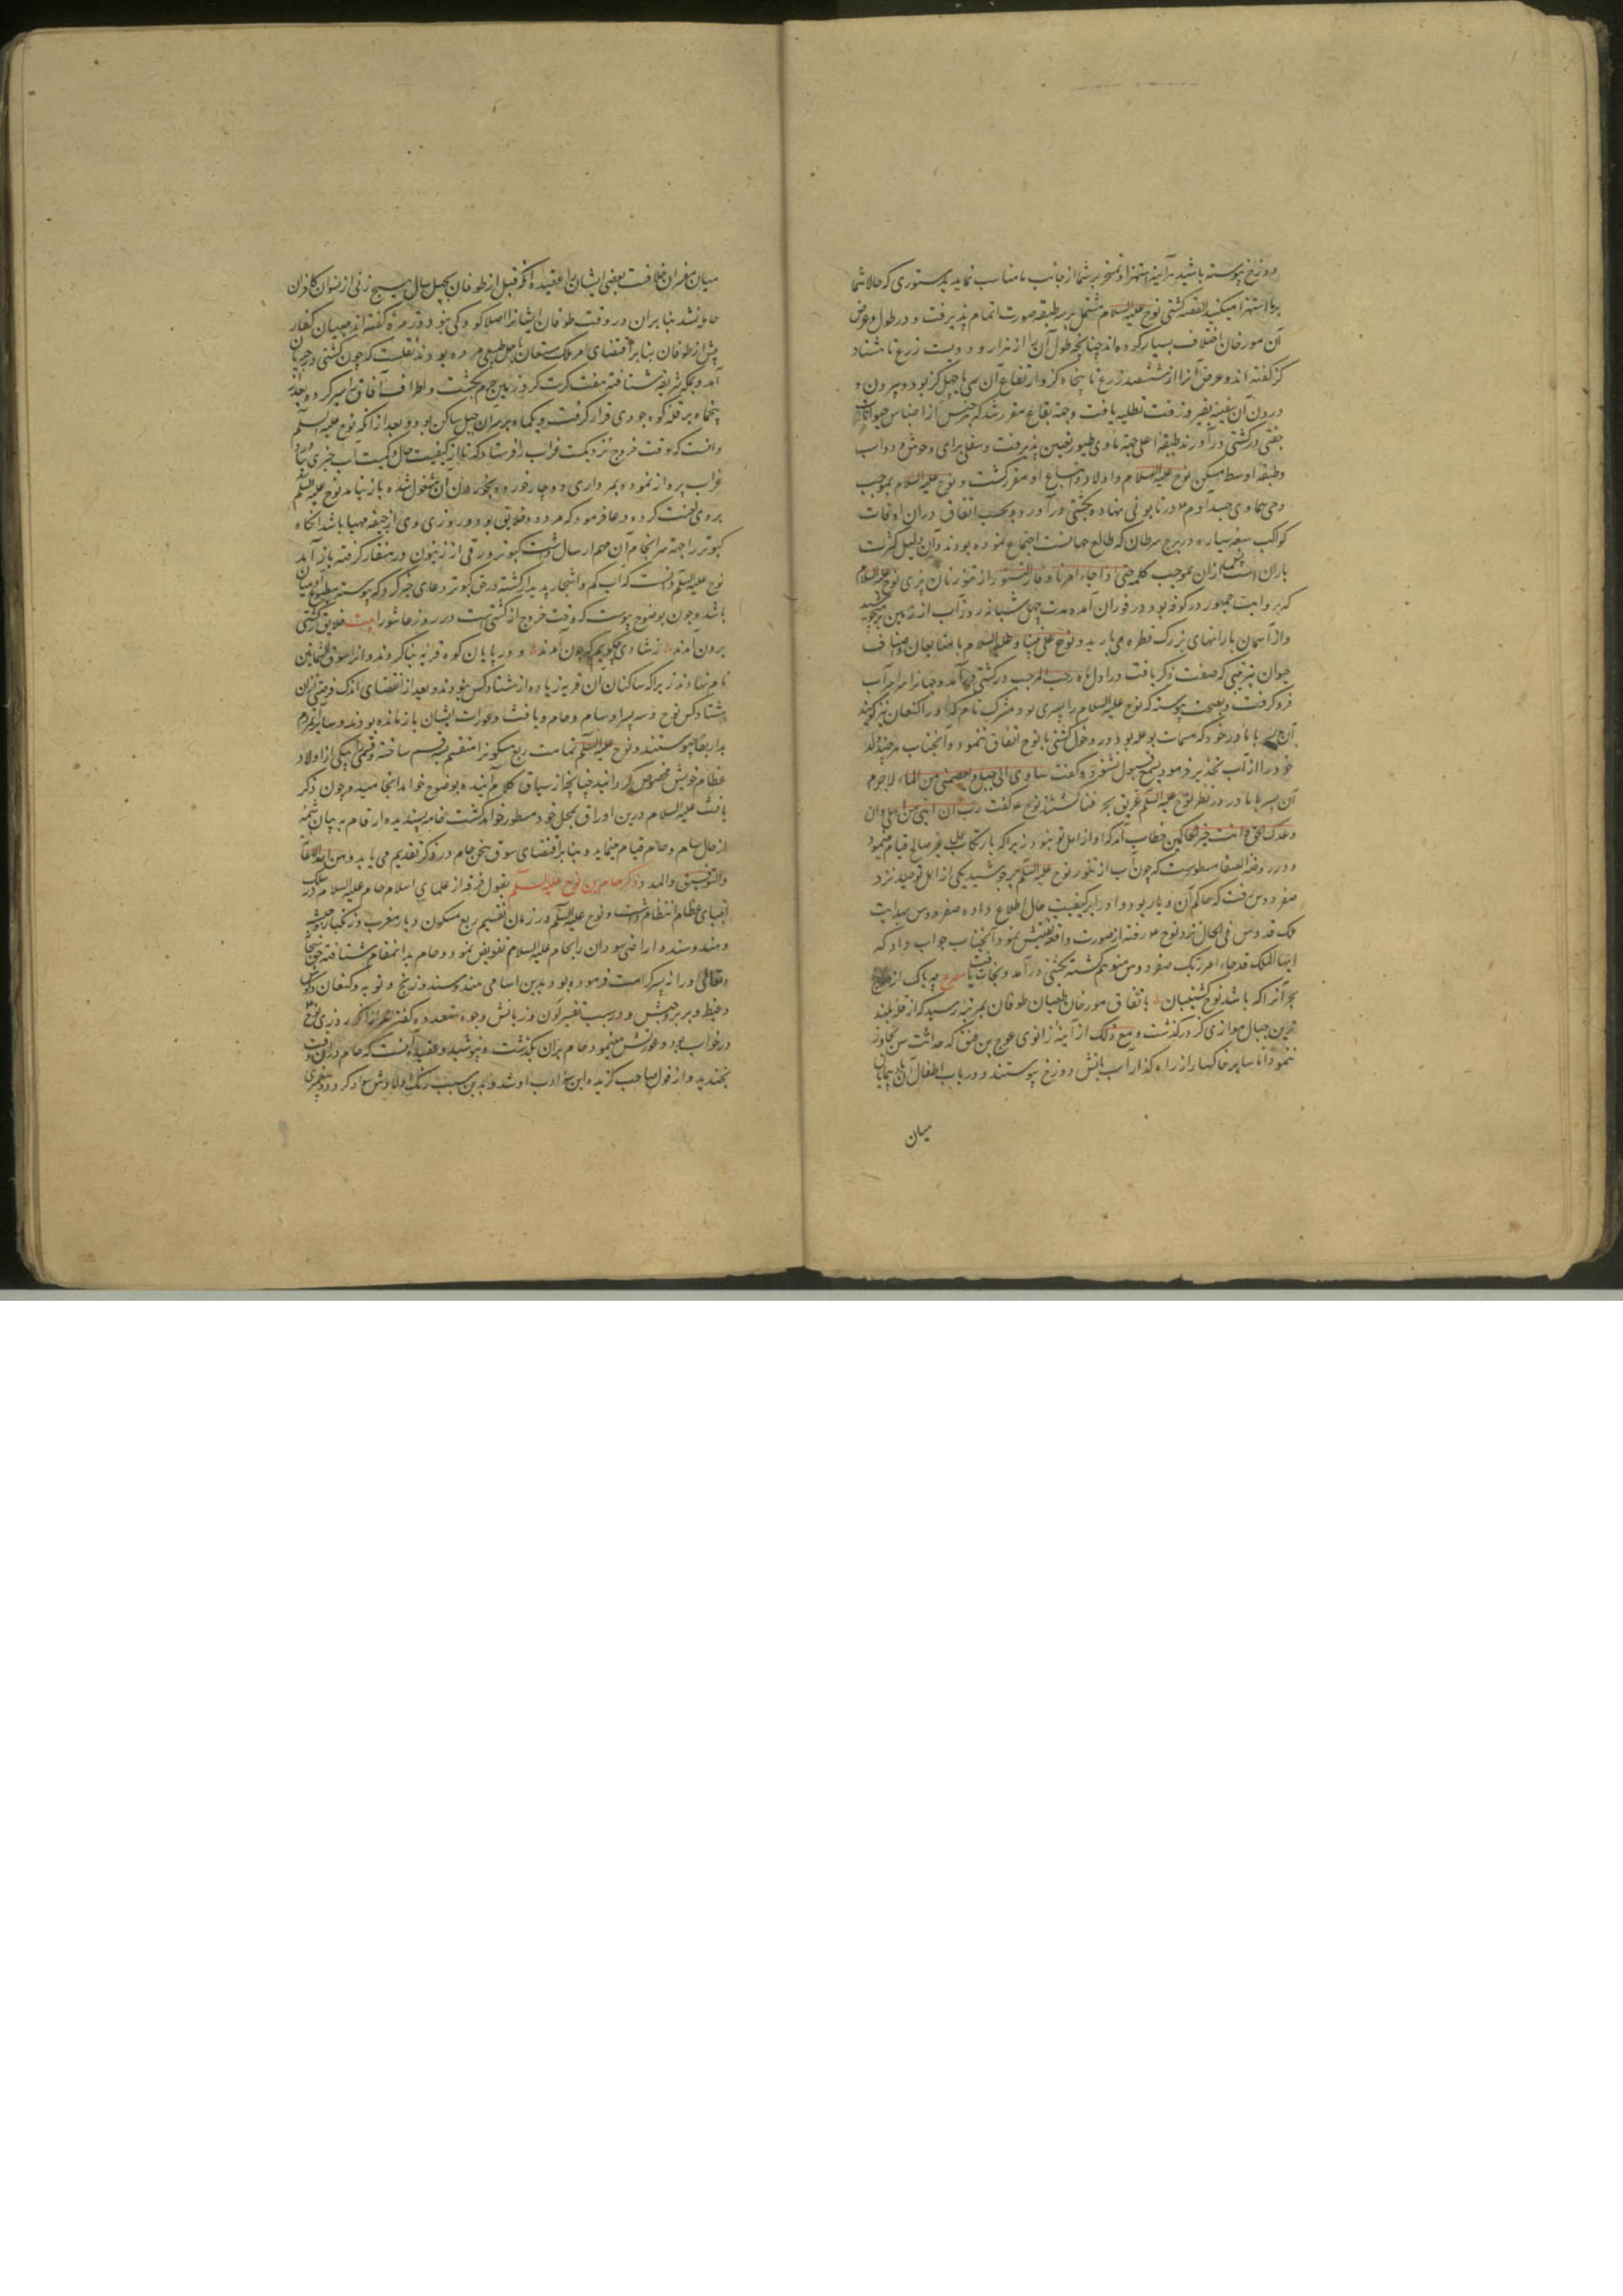 دوزخ پیوسته باشید هرآینه استهزا و تمسخر بر شما از جانب ما مناسب نماید بدستوری که حالا شما
بر ما استهزا میکنید القصه کشتی نوح علیه السلام مشتمل بر سه طبقه صورت اتمام پذیرفت و در طول و عرض
آن مورخان اختلاف بسیار کرده‌اند چنانچه طول آن را از هزار و دویست زرع تا هشتاد
گز گفته‌اند و عرض آنرا از ششصد زرع تا پنجاه گز و ارتفاع آن سی یا چهل گز بود و بیرون و
درون آن سفینه بقیر و زفت تطلیه یافت و مقرر شد که از هر جنس از اجناس حیوانات
جفتی در کشتی درآورند طبقه اعلی جهة مأوی طیور تعیین پذیرفت و سفلی برای وحوش و دواب
و طبقه اوسط مسکن نوح علیه السلام و اولاد و اتباع او مقرر گشت و نوح علیه السلام بموجب
وحی سماوی جسد آدم را در تابوتی نهاده بکشتی درآورد و بحسب اتفاق دران اوقات
کواکب سبعه سیاره در برج سرطان که طالع جهانست اجتماع نموده بودند و آن دلیل کثرت
باران است بعد ازان بموجب کلمه حتی اذا جاء امرنا و فار التنور از تنور نان پزی نوح علیه السلام
که بروایت جمهور در کوفه بود در فوران آمده مدت چهل شبانه روز آب از زمین میجوشید
و از آسمان بارانهای بزرگ قطره می‌بارید و نوح علی نبینا و علیه السلام با متابعان و اصناف
حیوان بترتیبی که صفت ذکر یافت در اول ماه رجب المرجب در کشتی درآمد و جهانرا سراسر آب
فرو گرفت و بصحت پیوسته که نوح علیه السلام را پسری بود مشرک نام که او را کنعان نیز گویند
آن پسر با مادر خود که مسمات بوعله بود در دخول کشتی با نوح اتفاق ننمود و آنجناب هرچند ولد
خود را از آب تحذیر فرمود بسمع قبول نشنود و گفت ساوی الی جبل یعصمنی من الماء لاجرم
آن پسر با مادر در نظر نوح علیه السلام غریق بحر فنا گشتند نوح گفت رب ان ابنی من اهلی و ان
وعدک الحق و انت خیر الحاکمین خطاب آمد که او از اهل تو نبود زیرا که بارتکاب عمل غیر صالح قیام مینمود
و در روضة الصفا مسطورست که چون آب از تنور نوح علیه السلام برجوشید یکی از اهل توحید نزد
صفردوس رفت که حاکم آن دیار بود و او را بر کیفیت حال اطلاع داده صفردوس بهدایت
ملک قدوس فی الحال نزد نوح رفته از صورت واقعه تفتیش نمود آنجناب جواب داد که
ایها الملک قد جاء امر ربک صفردوس مؤمن گشته بکشتی درآمد و نجات یافت مصرع چه باک از موج
بحر آنرا که باشد نوح کشتیبان باتفاق مورخان طغیان طوفان بمرتبه رسید که از قله بلند
ترین جبال موازی گز درگذشت و مع ذلک از آینه زانوی عوج بن عنق که حداثت سن تجاوز
ننمود اما سایر خاکسار را از راه گذار آب بآتش دوزخ پیوستند و در باب اطفال آن بی‌ایمانان
میان
میان مفسران خلافست بعضی ایشان را عقیده آنکه قبل از طوفان بچهل سال هیچ زنی از نسوان کافران
حامله نشد بنابران در وقت طوفان ایشانرا اصلا کودکی نبود و زمره گفته‌اند صبیان کفار
پیش از طوفان بنا بر اقتضای امر ملک مستعان باجل طبیعی مرده بودند نقلست که چون کشتی در جریان
آمد و بمکه شریفه شتافته هفت کرت گرد زمین حرم بگشت و اطراف آفاق را سیر کرده بعد از
پنجماه بر قله کوه جودی قرار گرفت و یکماه بر سر آن جبل ساکن بود و بعد از آنکه نوح علیه السلام
دانست که وقت خروج نزدیکست غراب را فرستاد که تا از کیفیت حال و کمیت آب خبری بیارد
غراب پرواز نموده بمرداری دوچار خورد و بخوردن آن مشغول شده بازنیامد نوح علیه السلام
بر وی لعنت کرده دعا فرمود که مردود خلایق بود و روزی وی از جیفه مهیا باشد آنگاه
کبوتر را جهة سرانجام آن مهم ارسال داشت کبوتر ورقی از زیتون در منقار گرفته باز آمد
نوح علیه السلام دانست که آب کم و اشجار پدید گشته در حق کبوتر دعای خیر کرد که پیوسته مطبوع آدمیان
باشد و چون بوضوح پیوست که وقت خروج از کشتی است در روز عاشورا بیت خلایق ز کشتی
برون آمدند ز شادی چگویم که چون آمدند و در پایان کوه قریه بنا کردند و آنرا سوق الثمانین
نام نهادند زیرا که ساکنان آن قریه زیاده از هشتاد کس نبودند و بعد از انقضای اندک فرصتی ازان
هشتاد کس نوح و سه پسر او سام و حام و یافث و عورات ایشان باز مانده بودند و سایر مردم
بدار بقا پیوستند و نوح علیه السلام تمامت ربع مسکونرا منقسم بسه قسم ساخته هر قسمی را بیکی از اولاد
عظام خویش مخصوص گردانید چنانچه از سیاق کلام آینده بوضوح خواهد انجامید و چون ذکر
یافث علیه السلام درین اوراق بمحل خود مسطور خواهد گشت خامه پسندیده ارقام به بیان شمه
از حال سام و حام قیام مینماید و بنا بر اقتضای سوق سخن حام در ذکر تقدیم می‌یابد و من الله الاعانة
والتوفیق والمدد ذکر حام بن نوح علیه السلام بقول فرقه از علمای اسلام حام علیه السلام در سلک
انبیای عظام انتظام داشت و نوح علیه السلام در زمان تقسیم ربع مسکون دیار مغرب و زنگبار و حبشه
و هند و سند و اراضی سودان را بحام علیه السلام تفویض نمود و حام بدانمقام شتافته حق سبحانه
و تعالی او را نه پسر کرامت فرموده بود بدین اسامی هند و سند و زنج و نوبه و کنعان و کوش
و قبط و بربر و حبش و در سبب تغییر لون و زبانش وجوه متعدده گفته‌اند اول آنکه روزی نوح
در خواب بود و عورتش مینمود حام بران بگذشت و نپوشید و عقیده آنست که حام دران وقت
بخندید و از قول صاحب گزیده این سوء ادب او شد و بدین سبب رنگ اولادش سواد کرد و پیغمبری